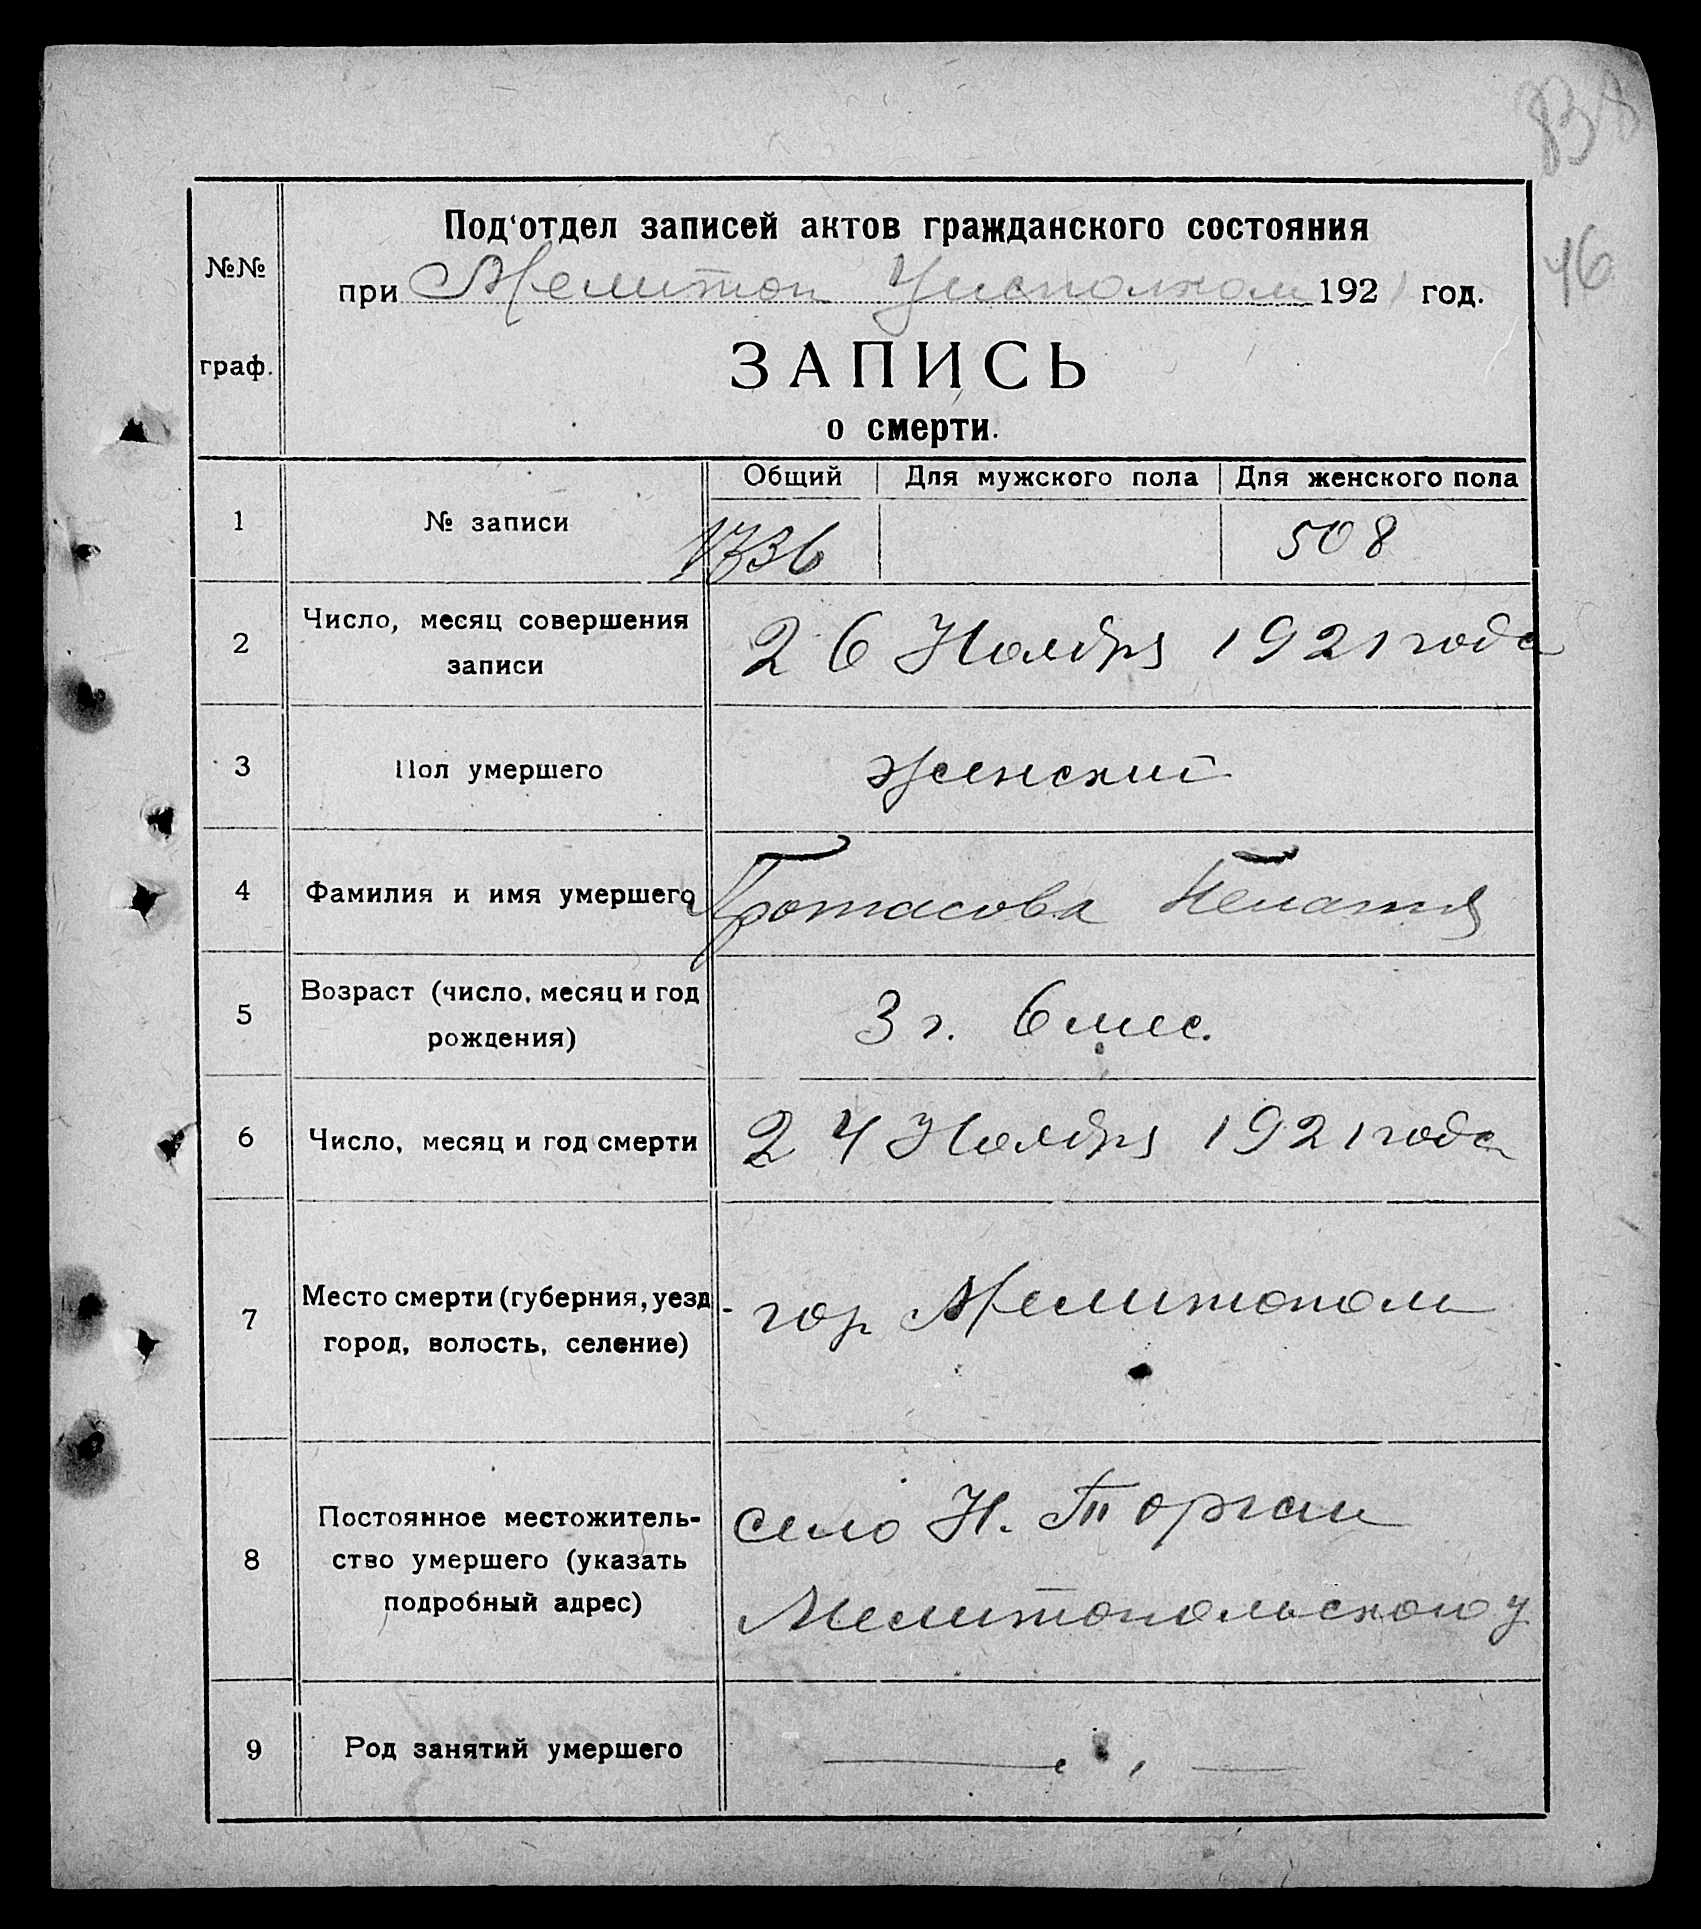 838
46
№№
граф.
Под‘отдел записей актов гражданского состояния
при Мелитоп Уисполком 1921 год.
ЗАПИСЬ
о смерти.
Общий Для мужского пола Для женского пола
1 № записи 1336 508
2 Число, месяц совершения
записи
26 Ноября 1921 года
3 Пол умершего женский
4 Фамилия и имя умершего Протасова
5 Возраст (число, месяц и год
рождения)
3 г. 6 мес.
6 Число, месяц и год смерти 24 Ноября 1921 года
7 Место смерти (губерния, уезд,
город, волость, селение)
гор Мелитополь
8 Постоянное местожитель-
ство умершего (указать
подробный адрес)
село Н. Торгаи
Мелитопольского у
9 Род занятий умершего